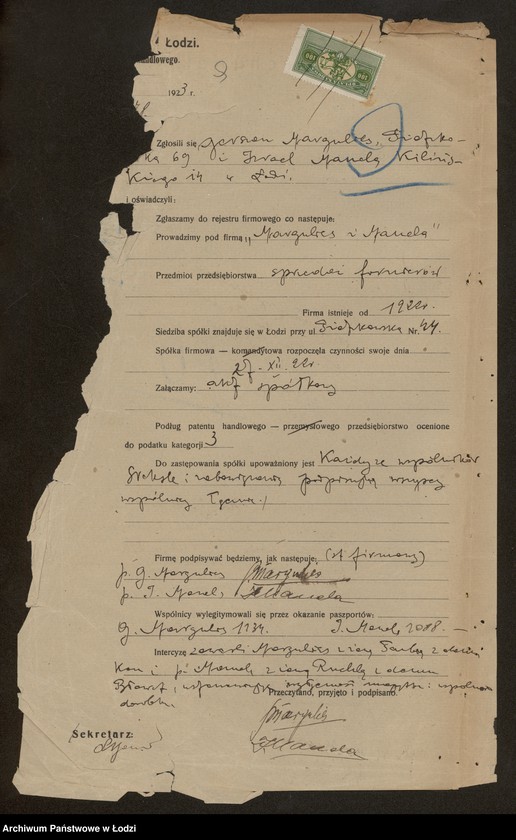 Łodzi.
handlowego.
1923 r.
100 100
Zgłosili się Gerszon Margulies, Piotrko-
ska 69 i Izrael Manela Kiliń-
skiego 14 w Łodzi.
i oświadczyli:
Zgłaszamy do rejestru firmowego co następuje:
Prowadzimy pod firmą „Margulies i Manela"
Przedmiot przedsiębiorstwa sprzedaż fornierów
Firma istnieje od 1922r.
Siedziba spółki znajduje się w Łodzi przy ul. Piotrkowska Nr. 44.
Spółka firmowa — komandytowa rozpoczęła czynności swoje dnia
XII. 22r
Załączamy: akt spółkowy
Podług patentu handlowego — przemysłowego przedsiębiorstwo ocenione
do podatku kategorji 3
Do zastępowania spółki upoważniony jest Każdy ze wspólników
Weksle i zobowiązania podpisują wszyscy
wspólnicy łącznie.
Firmę podpisywać będziemy, jak następuje: (st. firmowy)
p. G. Margulies GMargulies
p. I. Manela IManela
Wspólnicy wylegitymowali się przez okazanie paszportów:
G. Margulies 1134. I. Manela 2008.—
Intercyzę zawarli Margulies z żoną z domu
Kon i p. Manela z żoną Ruchlą z domu
wyłączność majątku i wspólność
dorobku.
Przeczytano, przyjęto i podpisano.
GMargulies
Sekretarz:
IManela
Archiwum Państwowe w Łodzi